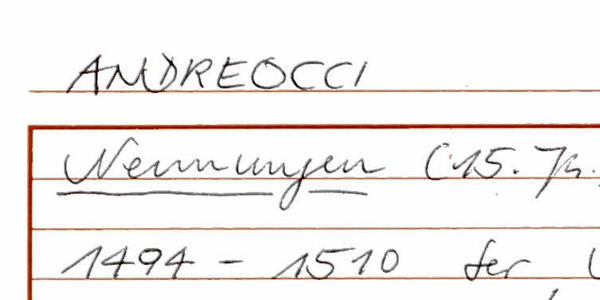 ANDREOCCI
Nennungen (15. Jh.
1494 - 1510 der